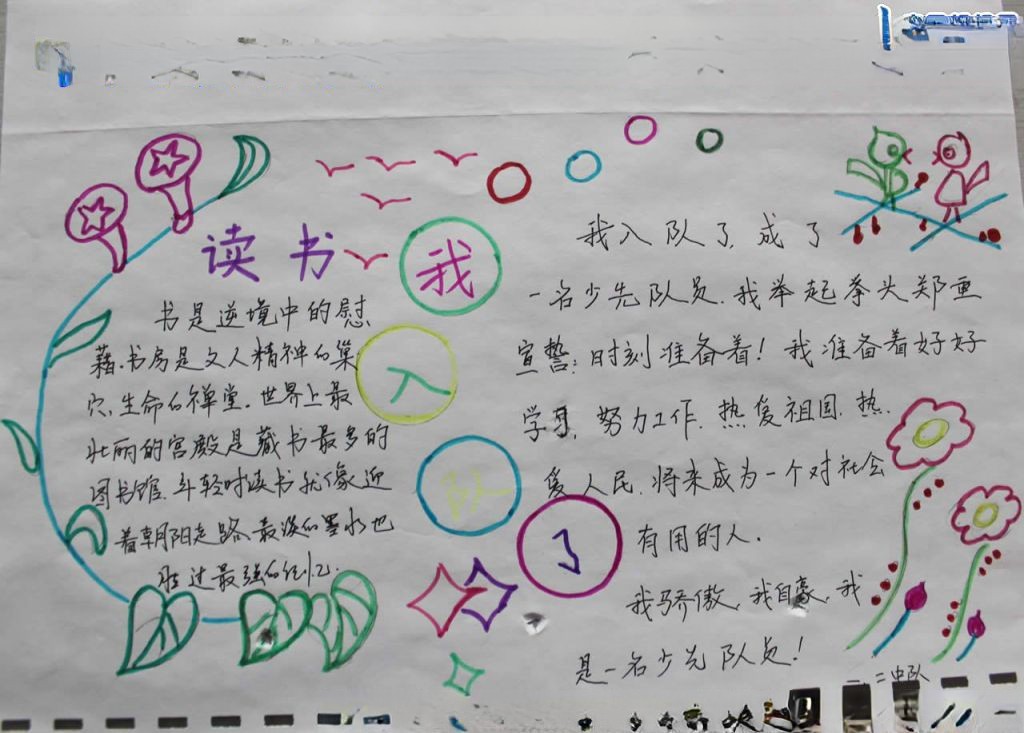 读书
书是逆境中的慰
藉.书房是文人精神的巢
穴.生命的禅堂.世界上最
壮丽的宫殿是藏书最多的
图书馆.年轻时读书就像迎
着朝阳走路.最淡的墨水也
胜过最强的记忆.
我
入
队
了
我入队了,成了
一名少先队员.我举起拳头郑重
宣誓:时刻准备着!我准备着好好
学习,努力工作.热爱祖国.热
爱人民.将来成为一个对社会
有用的人.
我骄傲,我自豪,我
是一名少先队员!
一、二中队